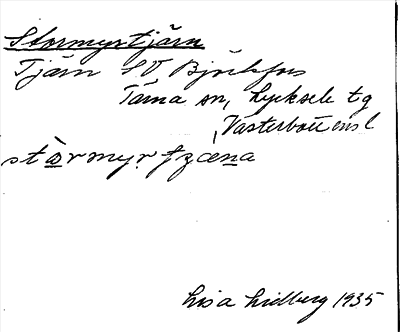 Stormyrtjärn
Tjärn SV Björkfors
Tärna sn, Lycksele tg
Västerbottens l
stɷ̀rmyr ʈʂæɳa
Lisa Lidberg 1935